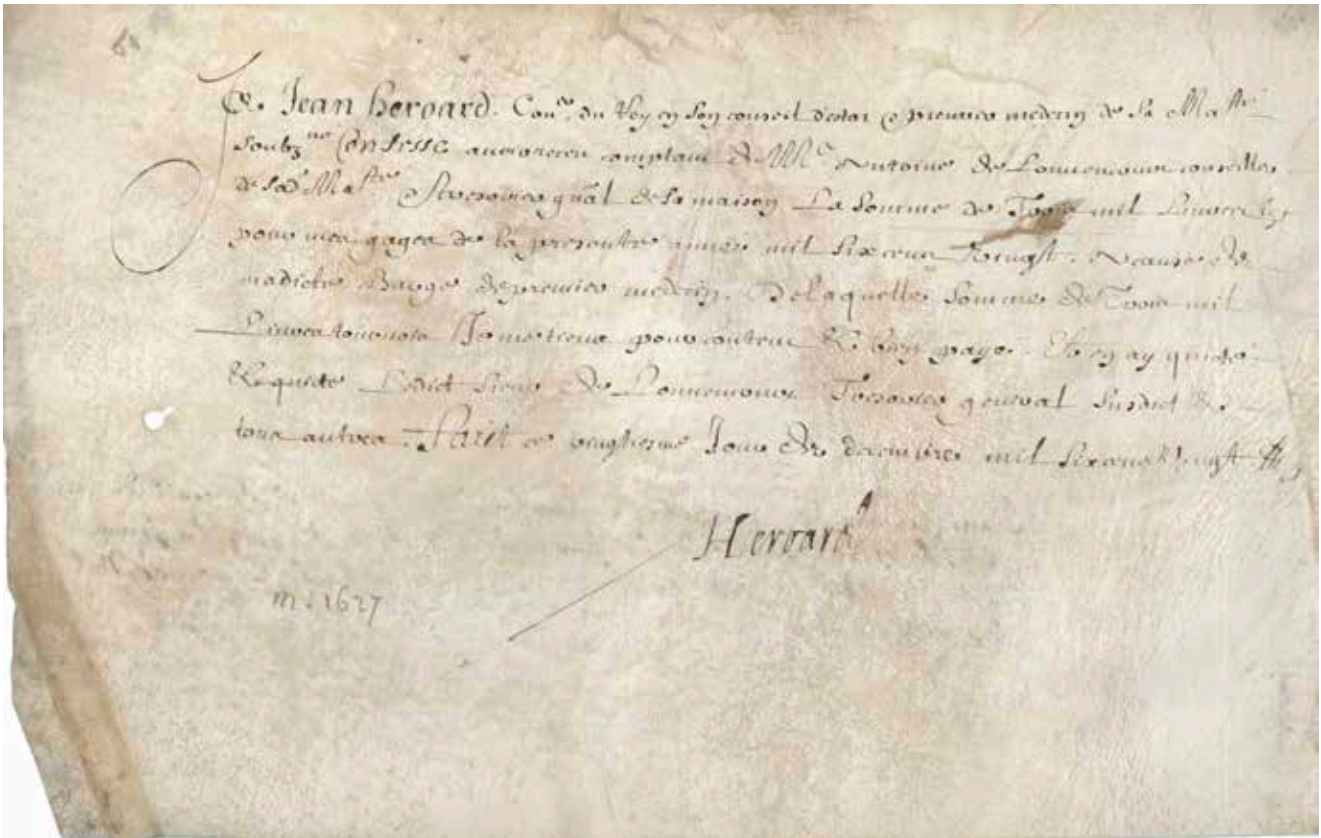 Je Jean heroard. Con.er du Roy en son conseil destat & premier medecin de sa Ma.té
soubz.né Confesse avoir receu comptant de M.e Antoine de Lommenie conseiller
de sad. Ma.té & tresorier gnal de sa maison La somme de Trois mil Livres tz
pour mes gages de la presente année mil six cens vingt. a cause de
madicte charge de premier medecin. De laquelle somme de Trois mil
Livres tournois Je me tiens pour content & bien payé. Et en ay quicté
& quicte Ledict sieur de Tresorier general susdict &
tous autres. Faict ce vingtiesme Jour de decembre mil six cens vingt
Heroard
m. 1627